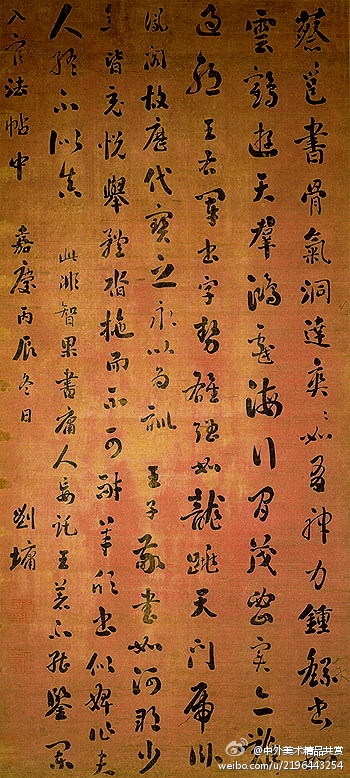 蔡邕書骨氣洞達爽爽如有神力鍾繇書
雲鶴遊天羣鴻戲海行間茂密實亦難
過 王右軍書字勢雄強如龍跳天門虎臥
鳳閣故歷代寶之永以為訓 王子敬書如河朔少
年皆充悅舉體沓拖而不可耐羊欣書似婢作夫
人終不似真 此非智果書庸人妄託王著不能鑒
入官法帖中 嘉慶丙辰冬日 劉墉
@中外美術精品共赏
weibo.com/u/2196443254